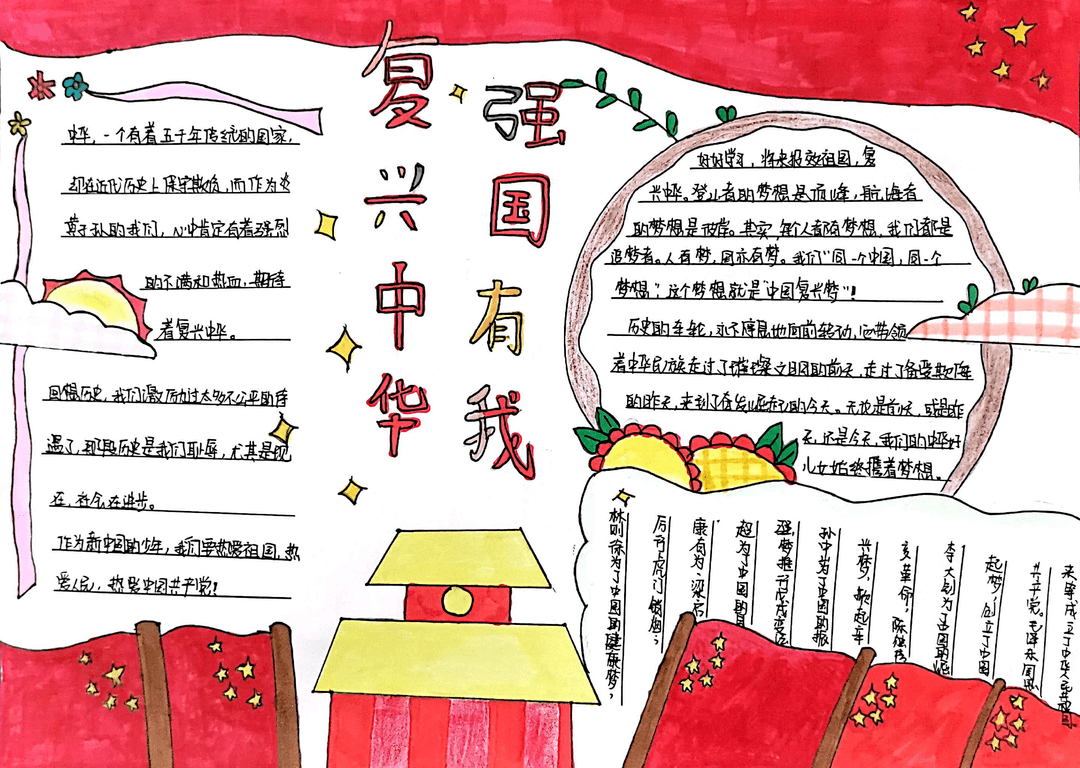 复兴中华
强国有我
中华，一个有着五千年传统的国家，
却在近代历史上保守欺负，而作为炎
黄子孙的我们，心中肯定有着强烈
的不满和热血，期待
着复兴中华。
回想历史，我们激历过太多不公平的待
遇了，那段历史是我们耻辱，尤其是现
在，社会在进步。
作为新中国的少年，我们要热爱祖国，热
爱人民，热爱中国共产党！
好好学习，将来报效祖国，复
兴中华。登山者的梦想是顶峰，航海者
的梦想是彼岸。其实，每个人都有梦想，我们都是
追梦者。人有梦，国亦有梦。我们“同一个中国，同一个
梦想”，这个梦想就是“中国复兴梦”！
历史的车轮，永不停息地向前转动，它带领
着中华民族走过了璀璨文明的前天，走过了备受欺侮
的昨天，来到了奋发崛起的今天。无论是前天，或是昨
天，还是今天，我们的中华好
儿女始终携着梦想。
林则徐为了中国的健康梦，
厉行虎门销烟；
康有为、梁启
超为了中国的
强梦推行戊戌变法
孙中山为了中国的振
兴梦，掀起辛
亥革命；陈独秀
李大钊为了中国的崛
起梦，创立了中国
共产党。毛泽东周恩
来等成立了中华人民共和国